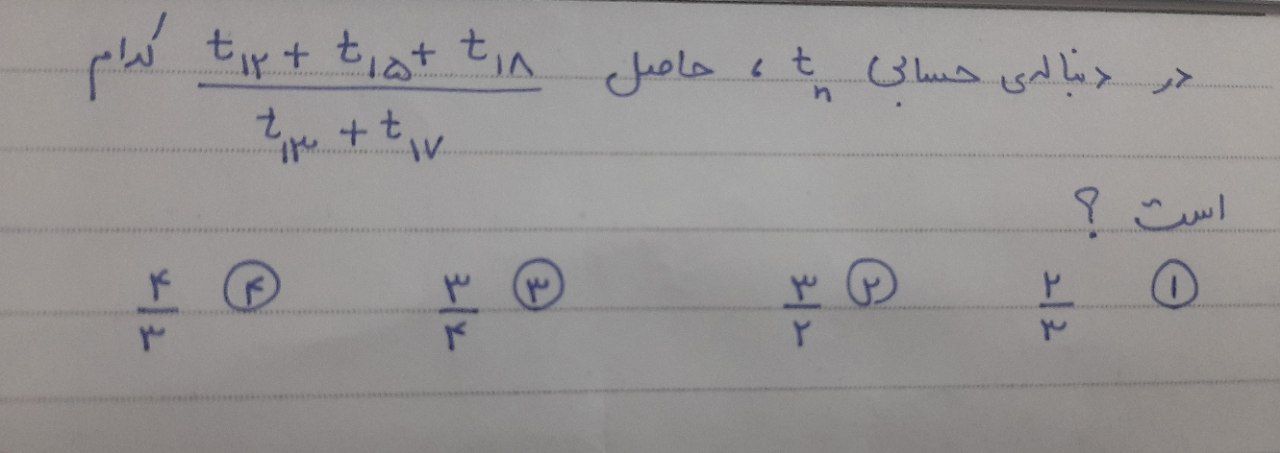 در دنباله‌ی حسابی tₙ ، حاصل (t₁₂ + t₁₅ + t₁₈) / (t₁₃ + t₁₇) کدام
است ؟
① ۲/۳ ② ۳/۲ ③ ۳/۴ ④ ۴/۳